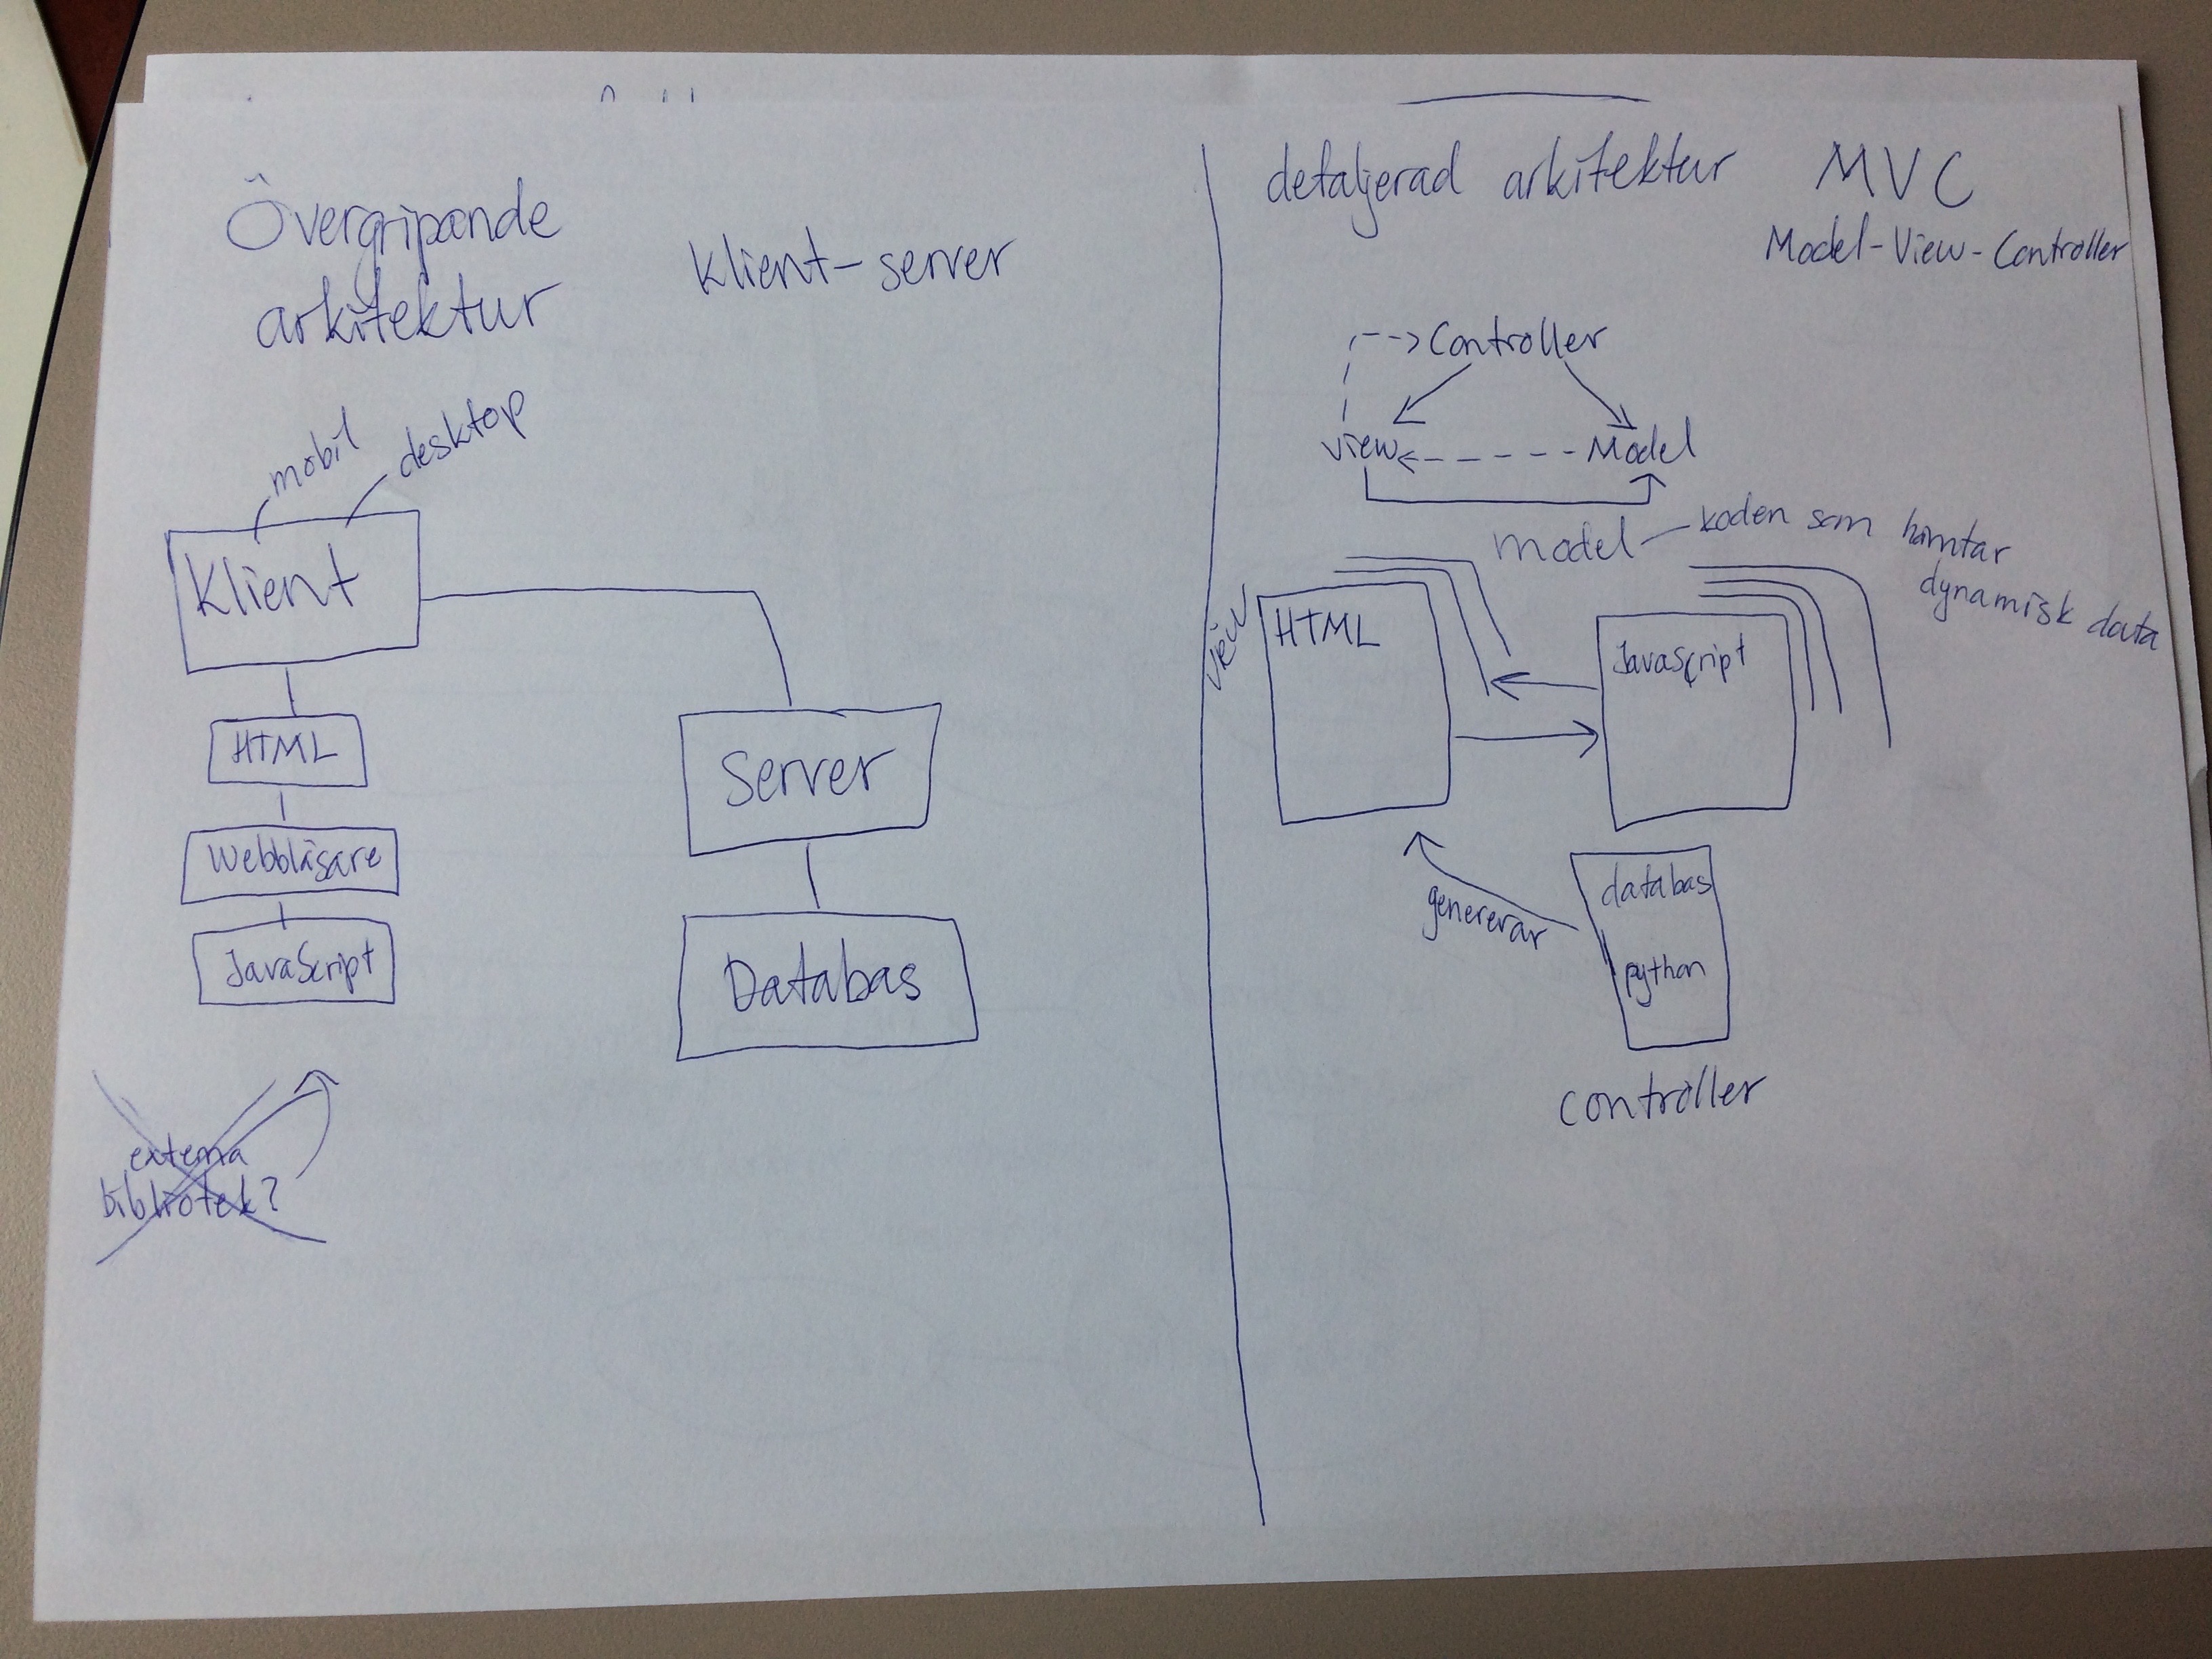 Övergripande
arkitektur
Klient-server
mobil
desktop
Klient
HTML
Webbläsare
JavaScript
Server
Databas
externa
bibliotek?
detaljerad arkitektur MVC
Model-View-Controller
Controller
View
Model
model
koden som hämtar
dynamisk data
view
HTML
JavaScript
genererar
databas
python
controller